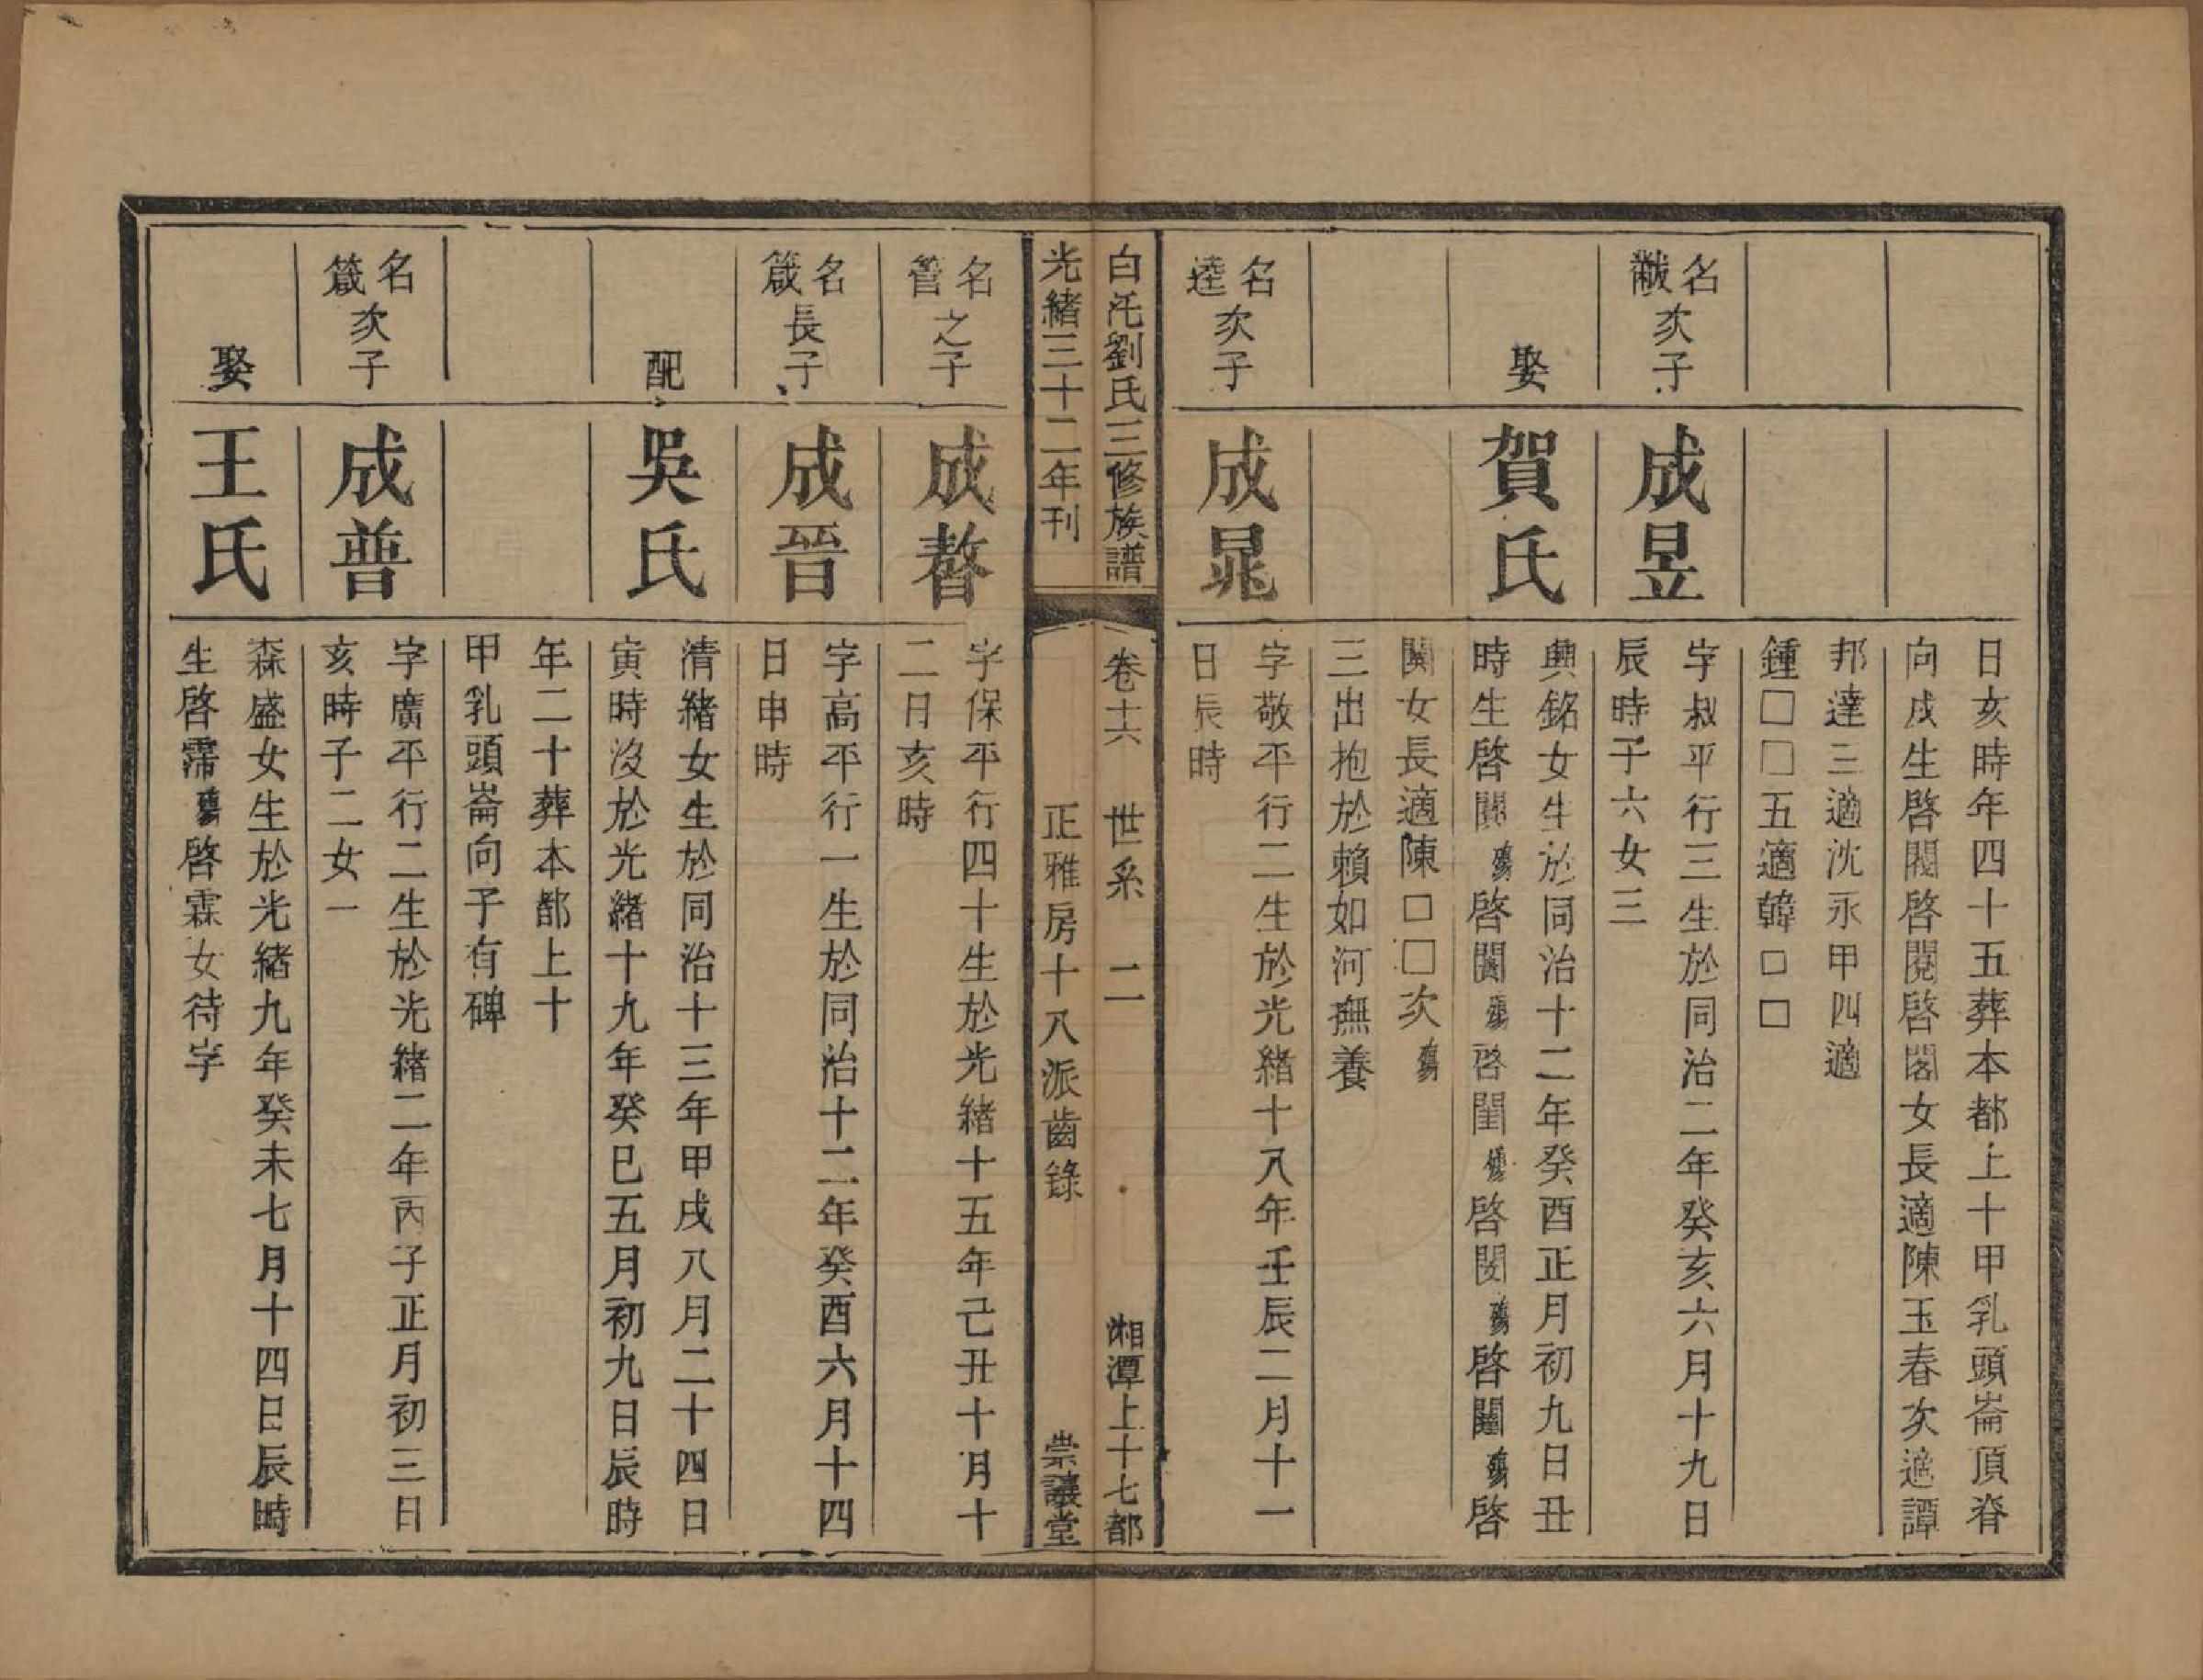 日亥時年四十五葬本都上十甲乳頭崙頂脊
向戌生啓閥啓閱啓閣女長適陳玉春次適譚
邦達三適沈永甲四適
鍾□□五適韓□□
名黻次子
成昱
字叔平行三生於同治二年癸亥六月十九日
辰時子六女三
娶
賀氏
興銘女生於同治十二年癸酉正月初九日丑
時生啓閼殤啓闐殤啓閨殤啓閔殤啓闓殤啓
闑女長適陳□□次殤
三出抱於賴如河撫養
名逵次子
成晁
字敬平行二生於光緒十八年壬辰二月十一
日辰時
白汑劉氏三修族譜
卷十六 世系 二
湘潭上十七都
光緒三十二年刊
正雅房十八派齒錄
崇讓堂
名管之子
成暬
字保平行四十生於光緒十五年己丑十月十
二日亥時
名箴長子
成晉
字高平行一生於同治十二年癸酉六月十四
日申時
配
吳氏
清緒女生於同治十三年甲戌八月二十四日
寅時沒於光緒十九年癸巳五月初九日辰時
年二十葬本都上十
甲乳頭崙向子有碑
名箴次子
成普
字廣平行二生於光緒二年丙子正月初三日
亥時子二女一
娶
王氏
森盛女生於光緒九年癸未七月十四日辰時
生啓霈殤啓霖女待字